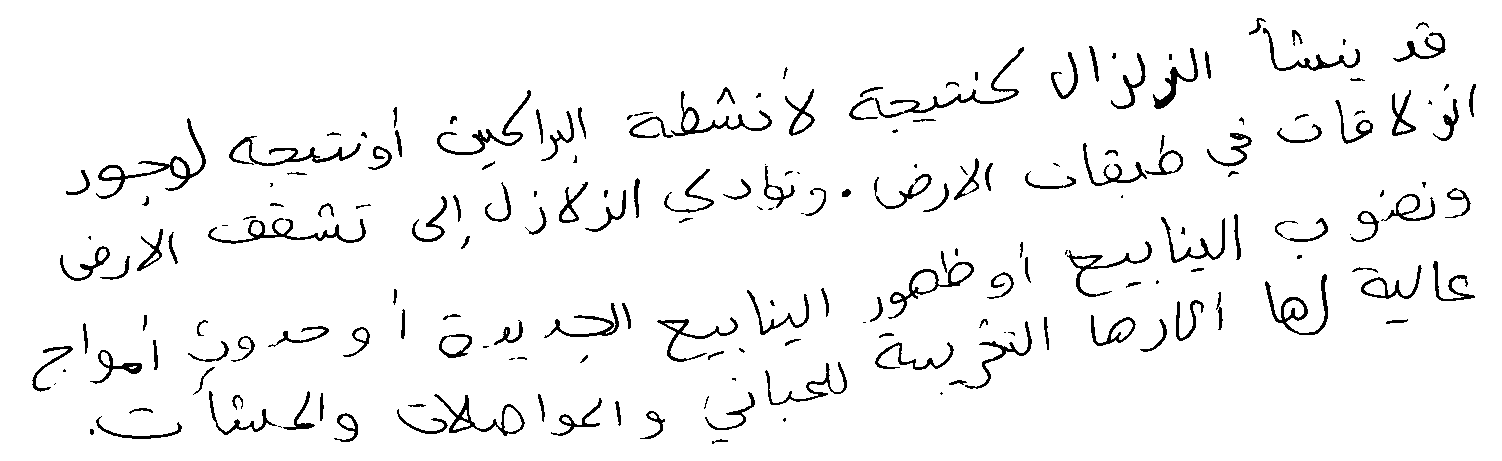 قد ينشأ الزلزال كنتيجة لأنشطة البراكين أو نتيجه لوجود
انزلاقات في طبقات الارض . وتؤدي الزلازل إلى تشقق الارض
ونضوب الينابيع أو ظهور الينابيع الجديدة أو حدوث أمواج
عالية لها اثارها التخريبية للمباني والمواصلات والمنشأت .